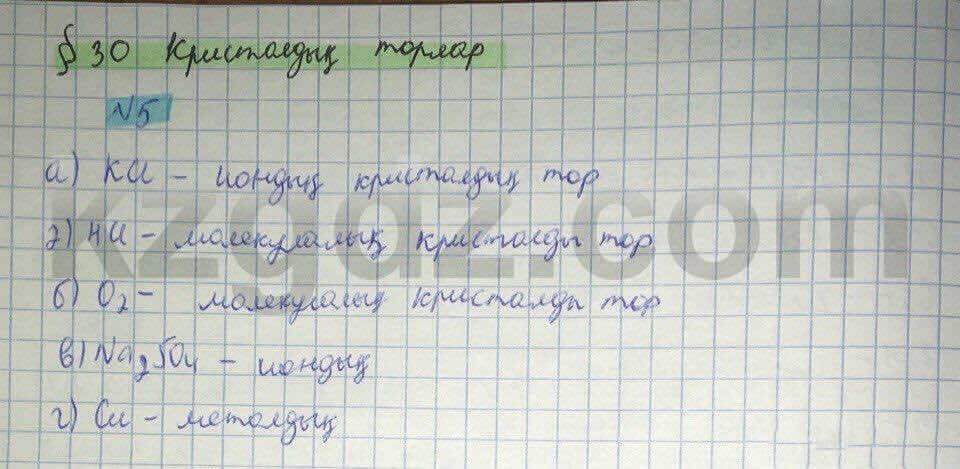 § 30 Кристалдық торлар
№5
а) KCl - иондық кристалдық тор
ә) HCl - молекулалық кристалды тор
б) O₂ - молекулалық кристалды тор
в) Na₂SO₄ - иондық
г) Cu - металдық
kzgdz.com